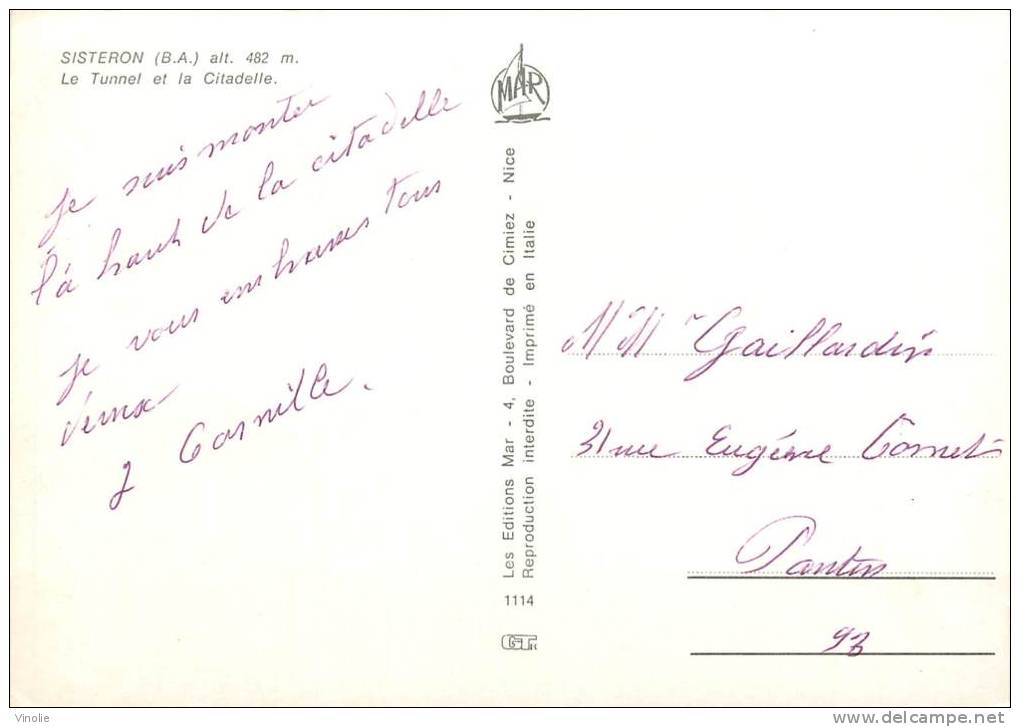 SISTERON (B.A.) alt. 482 m.
Le Tunnel et la Citadelle.
je suis monter
là haut de la citadelle
je vous embrasses tous
deux
J Cornille.
MAR
Les Editions Mar - 4, Boulevard de Cimiez - Nice
Reproduction interdite - Imprimé en Italie
1114
Mr Mme Gaillardin
31 rue Eugénie Cornet
Pantin
93
Vinolie
http://www.delcampe.net